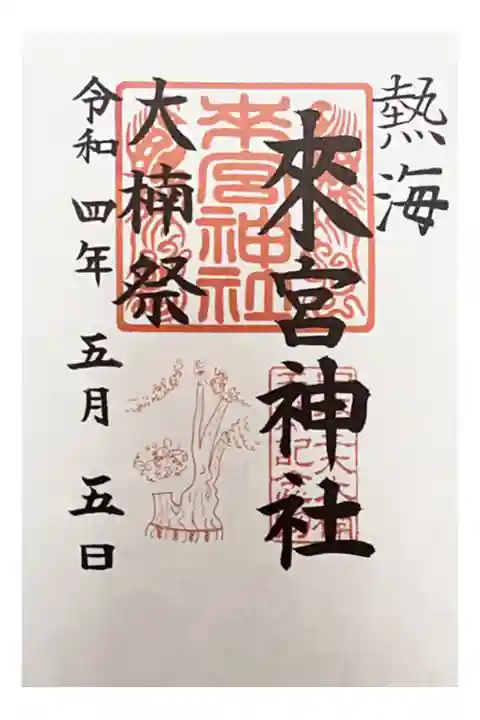 熱海
來宮神社
大楠祭
令和四年五月五日
来宮神社